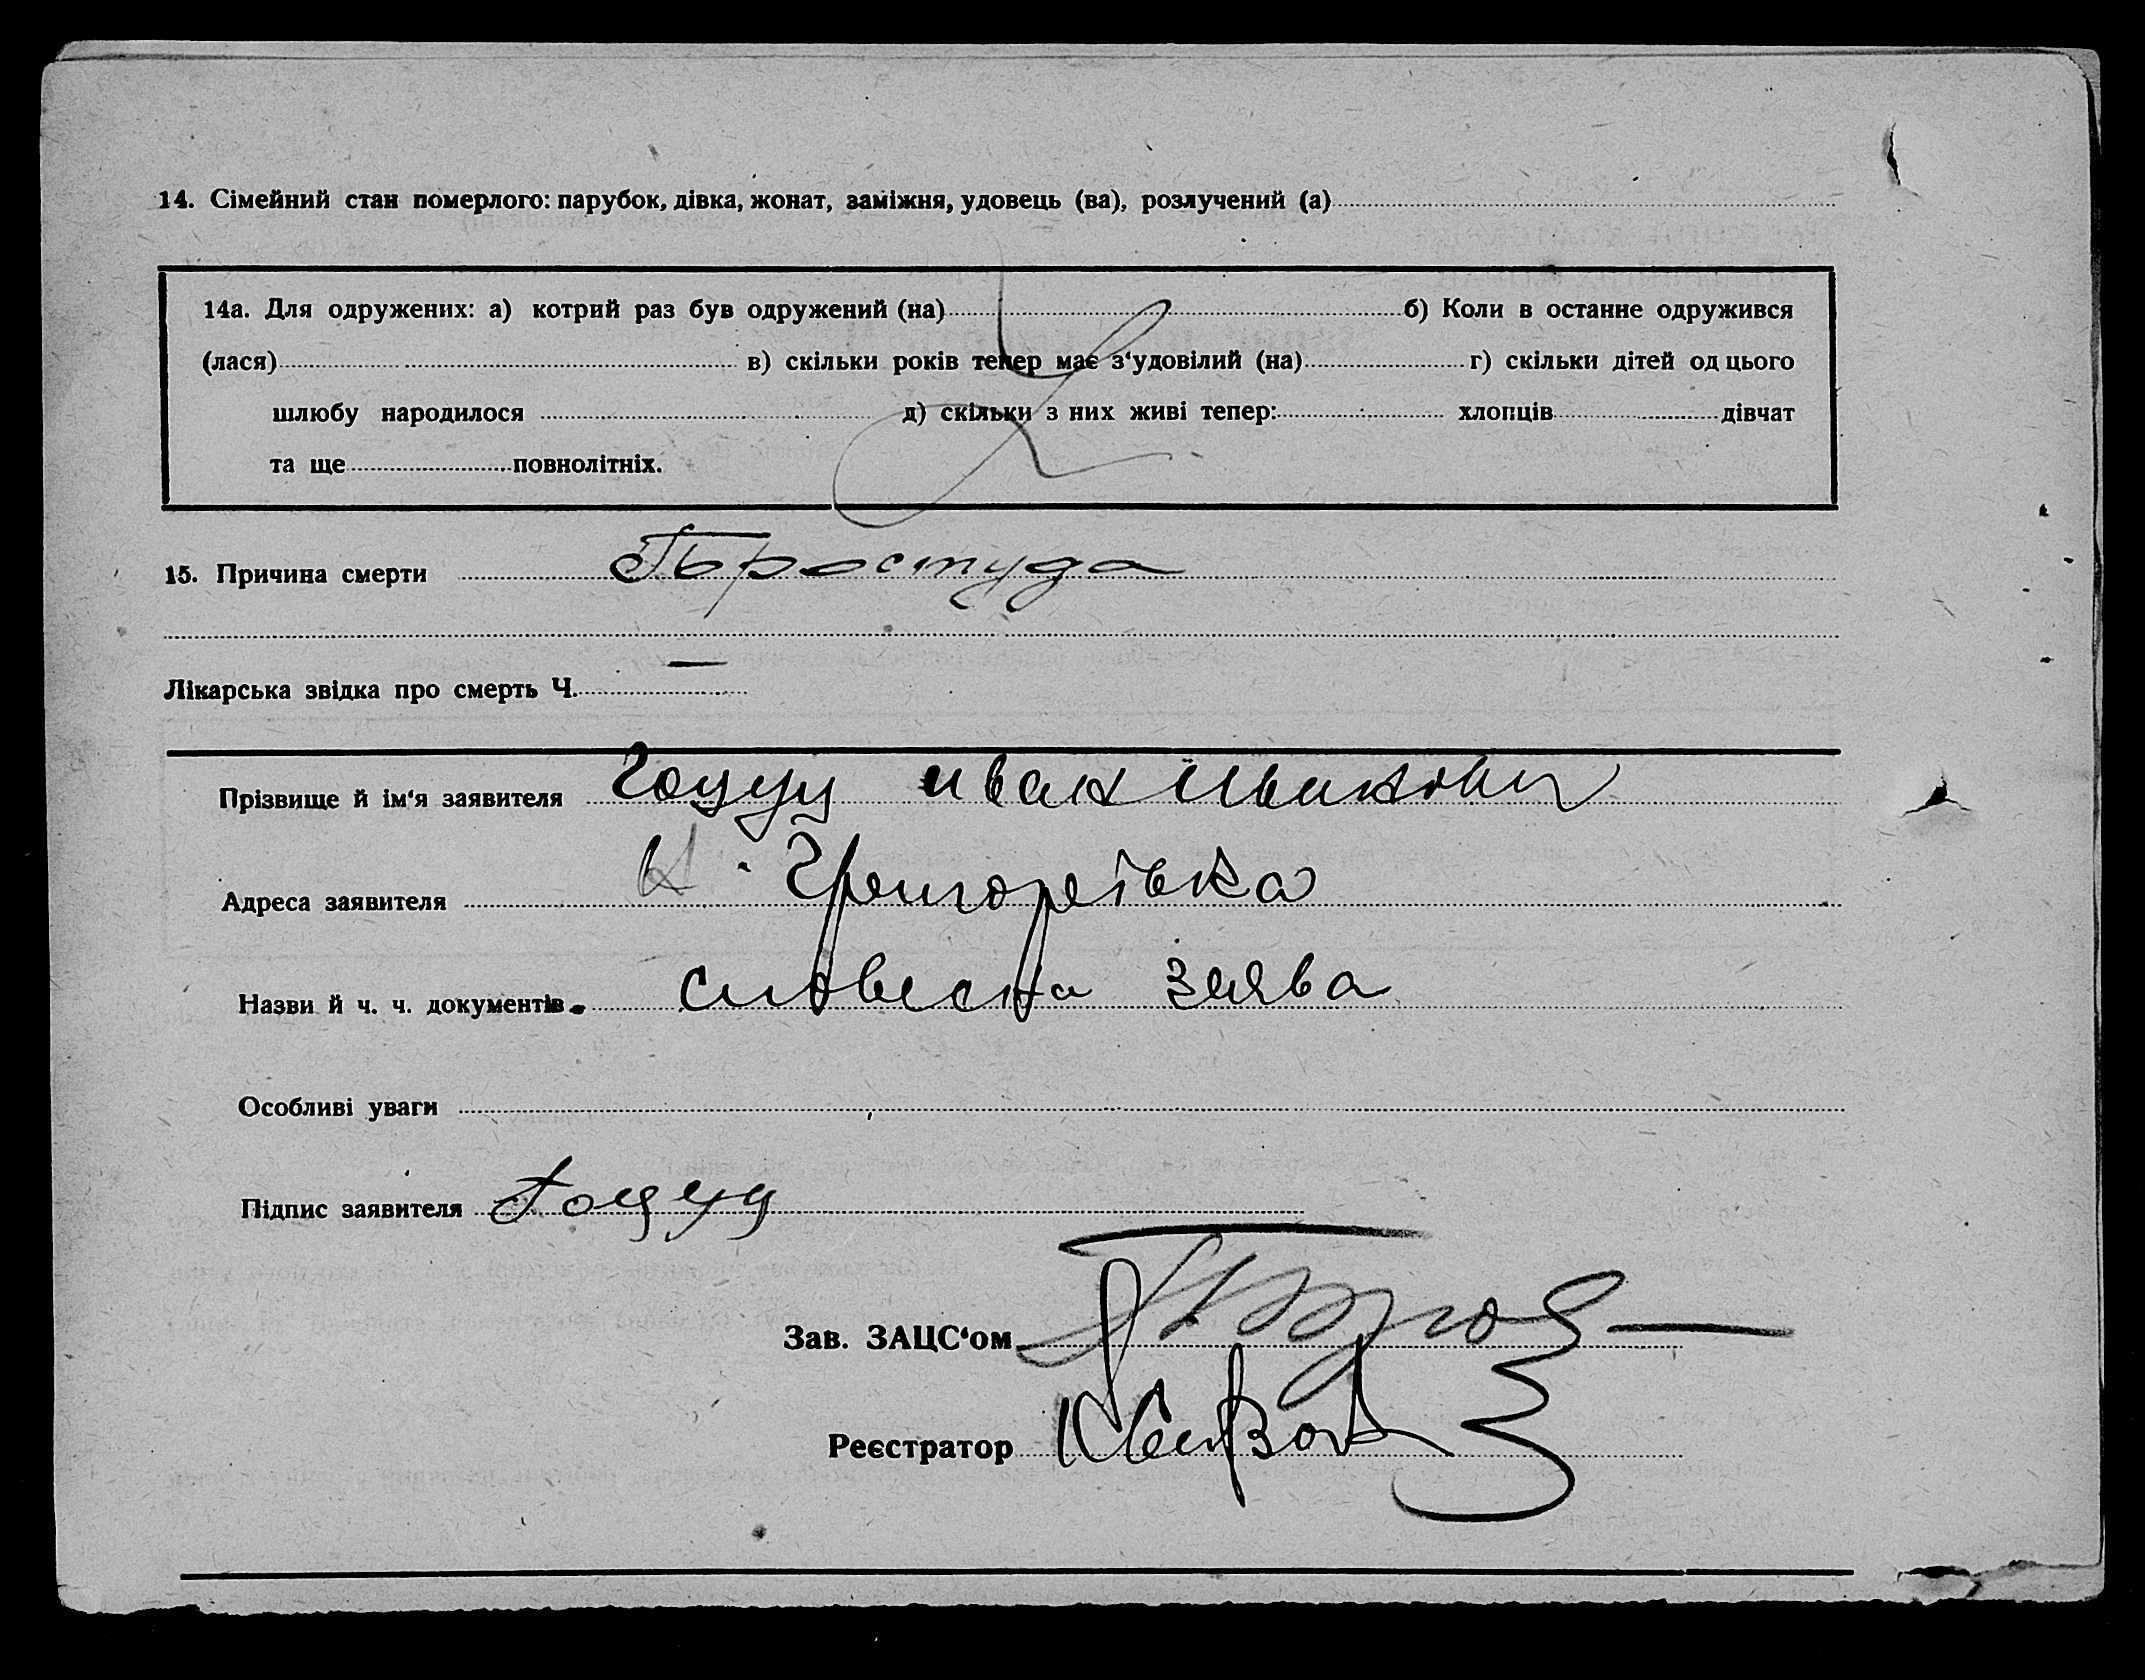 14. Сімейний стан померлого: парубок, дівка, жонат, заміжня, удовець (ва), розлучений (а)
14а. Для одружених: а) котрий раз був одружений (на) б) Коли в останне одружився
(лася) в) скільки років тепер має з‘удовілий (на) г) скільки дітей од цього
шлюбу народилося д) скільки з них живі тепер: хлопців дівчат
та ще повнолітніх.
15. Причина смерти Простуда
Лікарська звідка про смерть Ч. —
Прізвище й ім‘я заявителя Гоцуц Иван Иванович
Адреса заявителя
Назви й ч. ч. документів. словесна заява
Особливі уваги
Підпис заявителя Гоцуц
Зав. ЗАЦС‘ом
Реєстратор